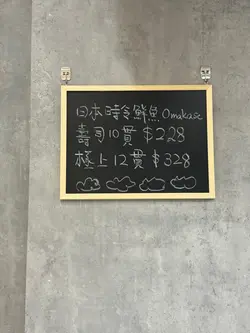 日本時令鮮魚 Omakase
壽司10貫 $228
極上12貫 $328